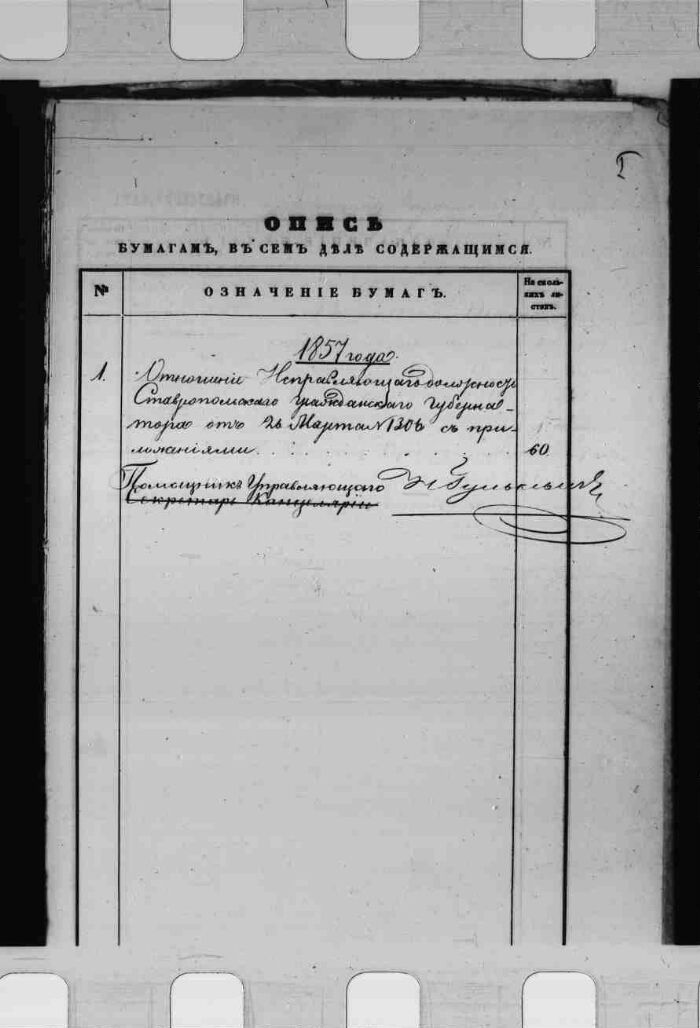 I
ОПИСЬ
БУМАГАМЪ, ВЪ СЕМЪ ДѢЛѢ СОДЕРЖАЩИМСЯ.
№
ОЗНАЧЕНІЕ БУМАГЪ.
На сколь-
кихъ ли-
стахъ.
1857 года.
1.
Отношеніе Исправляющаго должность
Ставропольскаго Гражданскаго Губерна-
тора отъ 26 Марта № 1306 съ при-
ложеніями
60
Помощникъ Управляющаго
Секретарь Канцеляріи